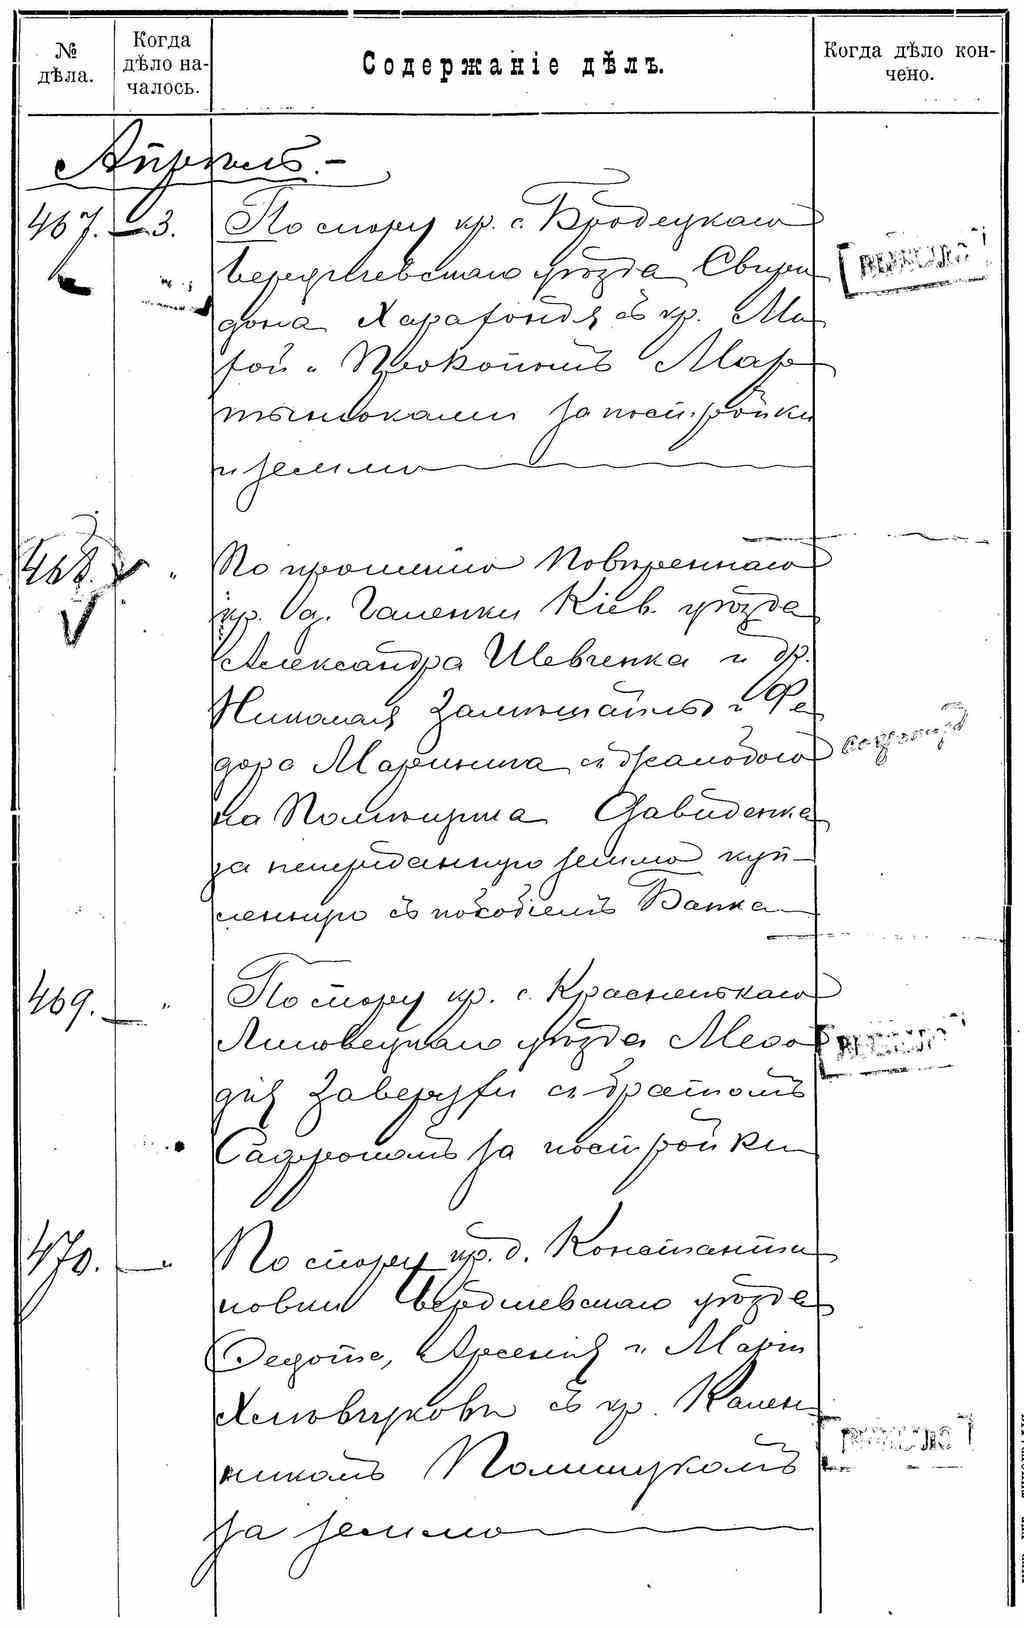 № дѣла.
Когда дѣло началось.
Содержаніе дѣлъ.
Когда дѣло кончено.
Апрѣль. —
467. — 3. По спору кр. с. Бродецкаго
Бердичевскаго уѣзда Свири
дона Харафондя съ кр. Ма
	фой и Прокопіемъ Мар
тынюками за постройки
и землю
468. " По прошенію повѣреннаго
кр. д. Галенки Кіев. уѣзда
Александра Шевченка и др.
Николая и Фе
дора съ
на Давиденка
за непереданную землю куп-
ленную съ пособіемъ Банка
469. — " По спору кр. с. Красненькаго
Липовецкаго уѣзда Меѳо
дія Заверухи съ братомъ
Сафрономъ за постройки
470. — " По спору кр. д. Константи
новки Бердичевскаго уѣзда
Ѳедота, Арсенія и Маріи
съ кр. Кален-
никомъ Полищукомъ
за землю